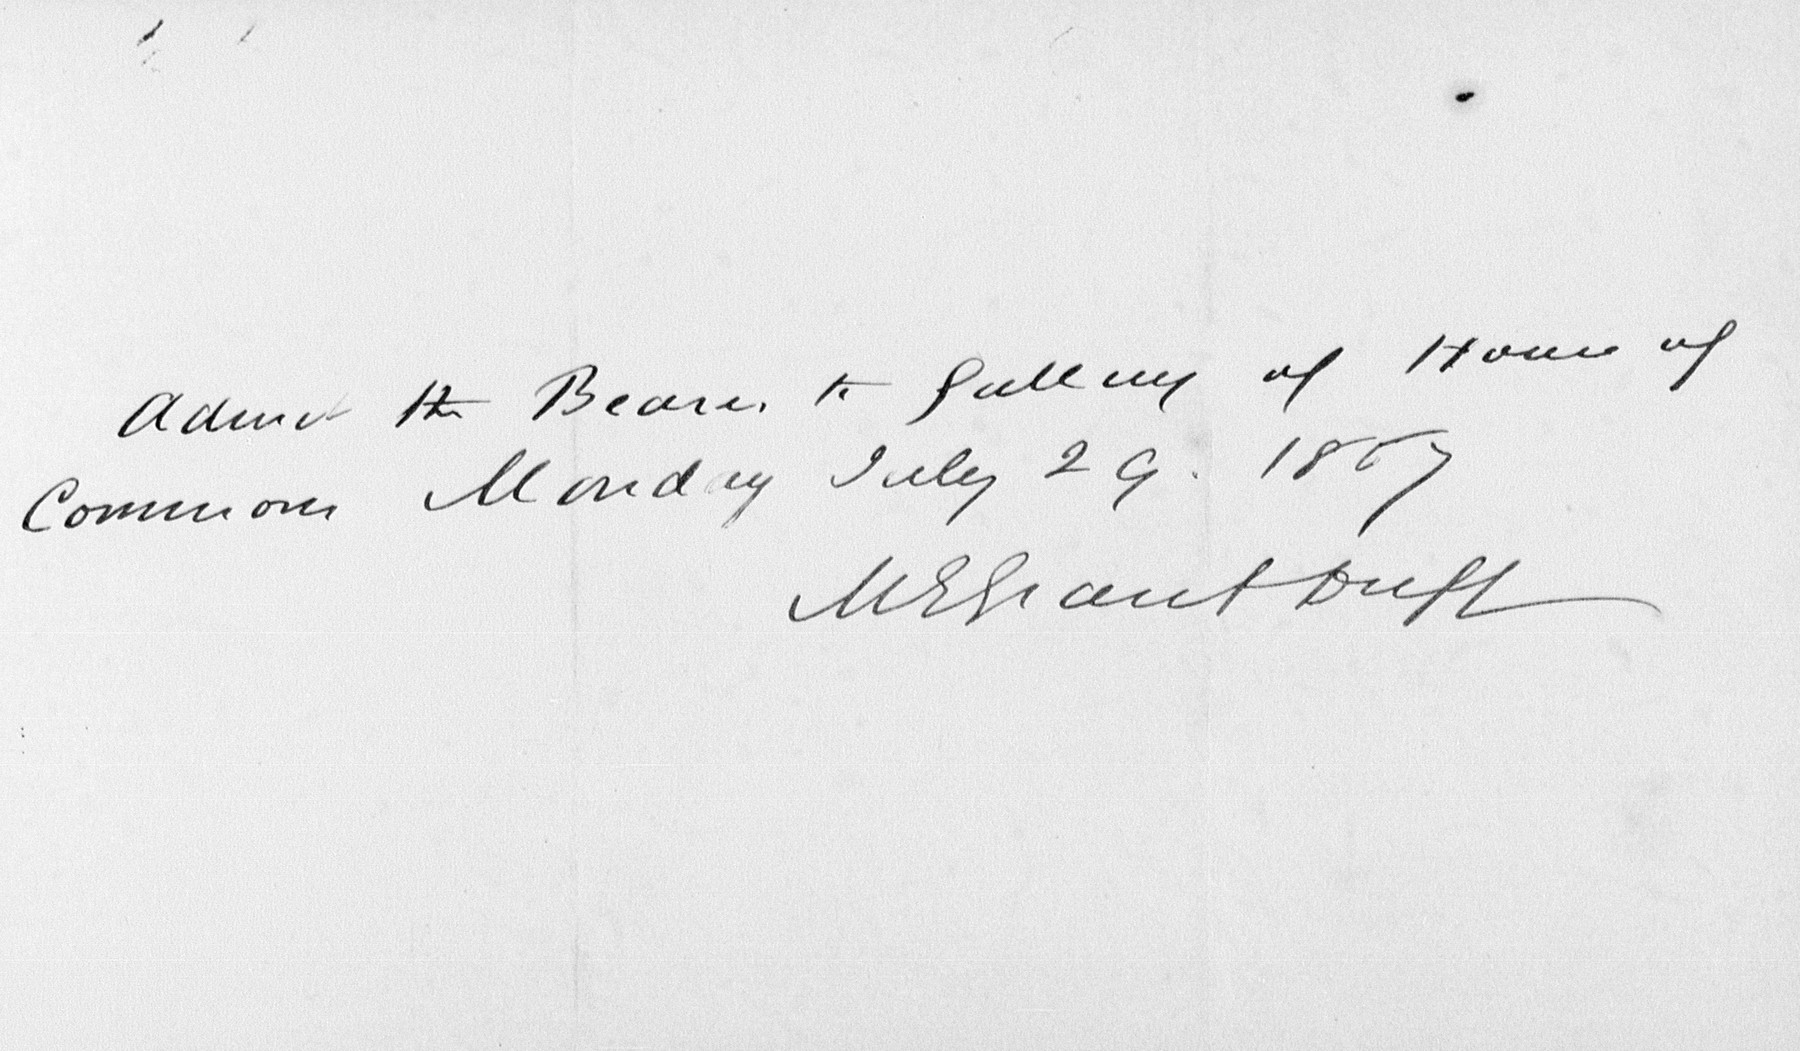 Admit the Bearer to Gallery of House of
Commons Monday July 29. 1867
M E Grant Duff